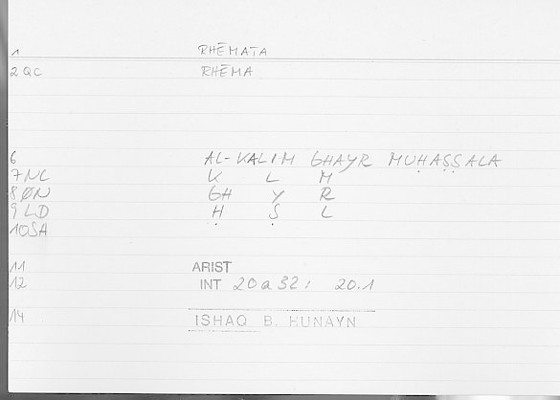 1 RHĒMATA
2 QC RHĒMA
6 AL-KALIM GHAYR MUḤAṢṢALA
7 NC K L M
8 ØN GH Y R
9 LD Ḥ Ṣ L
10 SA
11 ARIST
12 INT 20a32; 20.1
14 ISHAQ B. HUNAYN